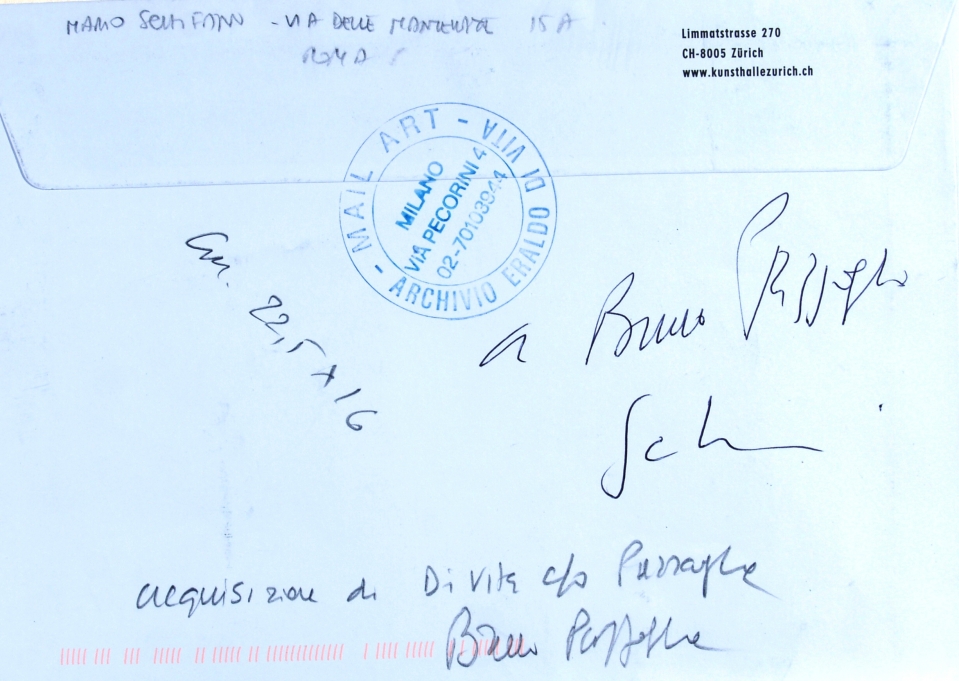 MARIO SCHIFANO - VIA DELLE MANTELLATE 15A
ROMA
Limmatstrasse 270
CH-8005 Zürich
www.kunsthallezurich.ch
- MAIL ART - ARCHIVIO ERALDO DI VITA
MILANO
VIA PECORINI 4
02-70103944
cm. 22,5 x 16
a Bruno
acquisizione di Di Vita c/o
Bruno